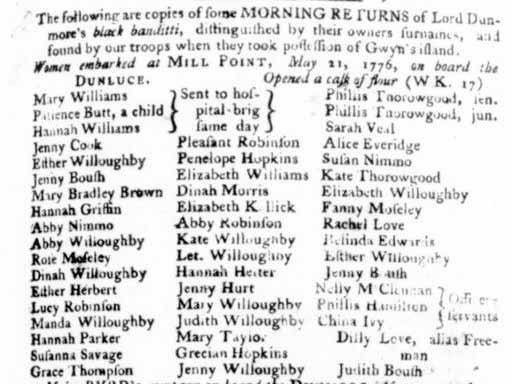 The following are copies of some MORNING RETURNS of Lord Dun-
more's black banditti, distinguished by their owners surnames, and
found by our troops when they took possession of Gwyn's island.
Women embarked at MILL POINT, May 21, 1776, on board the
DUNLUCE. Opened a cask of flour (W K. 17)
Mary Williams } Sent to hos- Phillis Thorowgood, sen.
Patience Butt, a child } pital-brig Phillis Thorowgood, jun.
Hannah Williams } same day } Sarah Veal
Jenny Cook Pleasant Robinson Alice Everidge
Esther Willoughby Penelope Hopkins Susan Nimmo
Jenny Boush Elizabeth Williams Kate Thorowgood
Mary Bradley Brown Dinah Morris Elizabeth Willoughby
Hannah Griffin Elizabeth K Fanny Moseley
Abby Nimmo Abby Robinson Rachel Love
Abby Willoughby Kate Willoughby Belinda Edwards
Rose Moseley Let. Willoughby Esther Willoughby
Dinah Willoughby Hannah Jenny Boush
Esther Herbert Jenny Hurt Nelly
Lucy Robinson Mary Willoughby Phillis Hamilton } Officers
Manda Willoughby Judith Willoughby China Ivy } servants
Hannah Parker Mary Taylor Dilly Love, alias Free-
Susanna Savage Grecian Hopkins man
Grace Thompson Jenny Willoughby Judith Boush